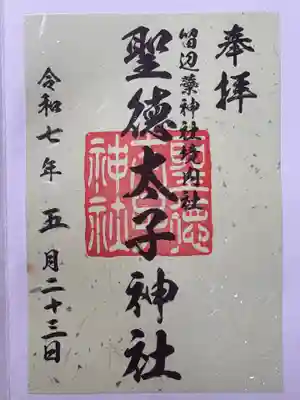 奉拝
笛辺蘂神社境内社
聖徳太子神社
聖徳太子神社
令和七年五月二十三日